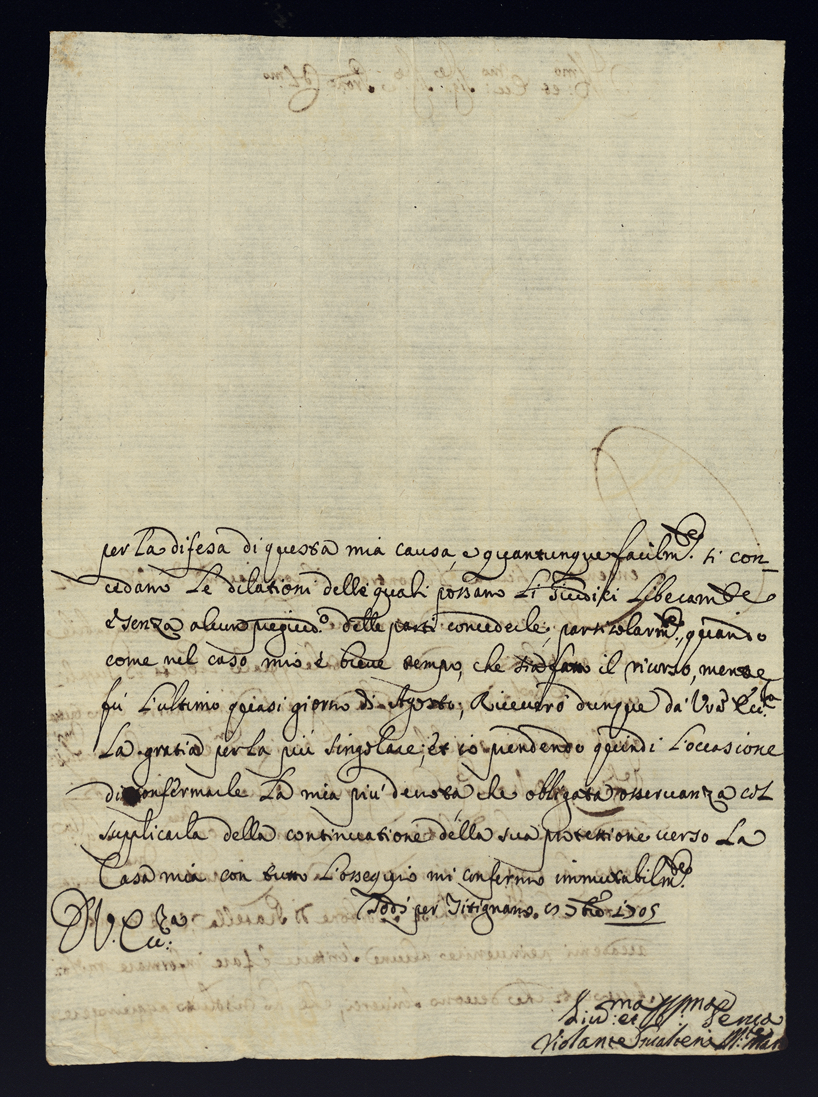 per la difesa di questa mia causa, e quantunque facilm.te si con_
cedano le dilationi delle quali possano li Giudici liberamte
e senza alcun pregiud.o delle parti concederle, particolarm.te, quando
come nel caso mio è breve tempo, che fatto il ricorso, mentre
fù l'ultimo quasi giorno di Agosto; Riceverò dunque da' Vra Ecc.za
la gratia per la più singolare; et io prendendo quindi l'occasione
di confermarle la mia più devota che obligata osservanza col
supplicarla della continuatione della sua protettione verso la
Casa mia con tutto l'ossequio mi confermo immutabilm.te
Todi per Titignano 7bre 1705
Di V. Ecc.za
Div.ma et Serva
Violante Gualterii